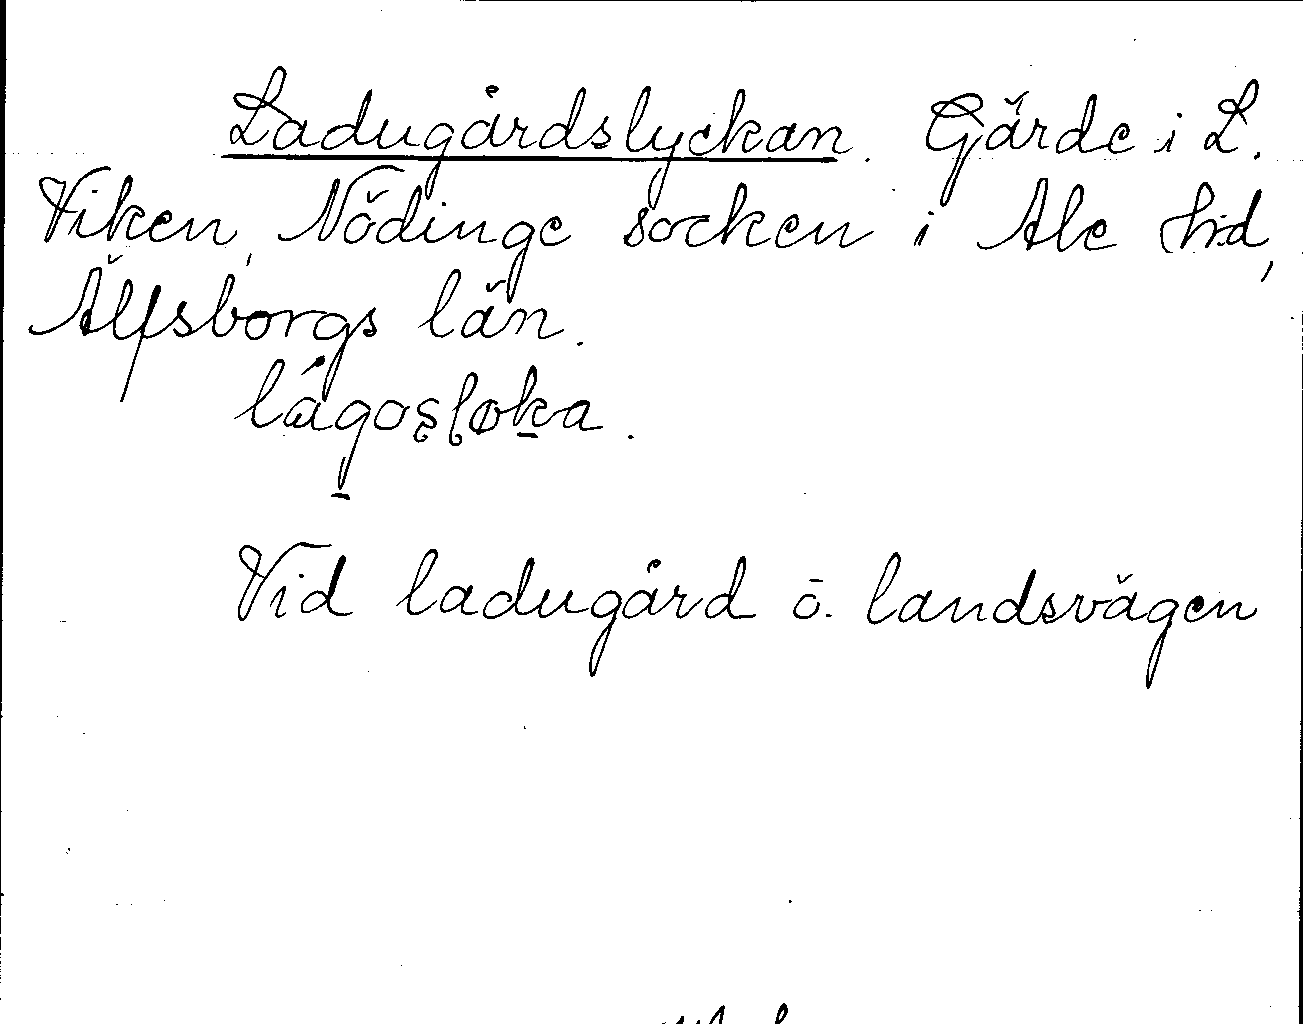 Ladugårdslyckan. Gärde i L.
Viken, Nödinge socken i Ale hd,
Älfsborgs län.
lágosloka.
Vid ladugård ö. landsvägen